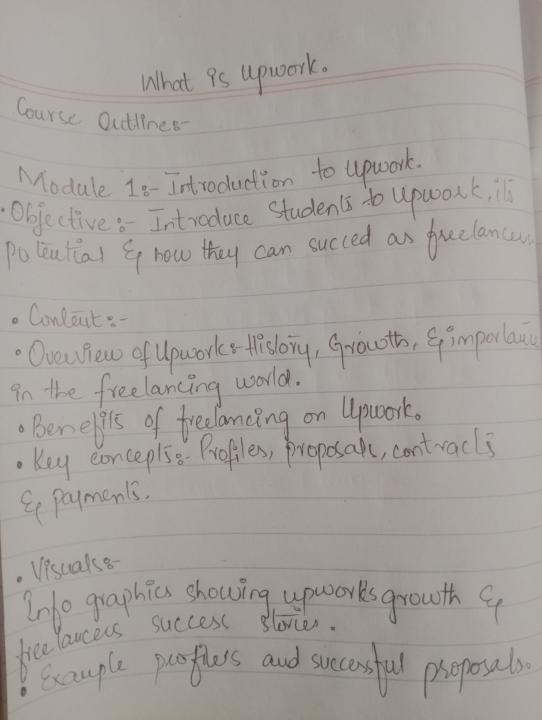 What is upwork.
Course Outlines:-
Module 1:- Introduction to Upwork.
• Objective:- Introduce Students to Upwork, its
potential & how they can succed as freelancers
• Content:-
• Overview of Upwork:- History, Growth, & importance
in the freelancing world.
• Benefits of freelancing on Upwork.
• Key concepts:- Profiles, proposals, contracts
& payments.
• Visuals:-
Info graphics showing upwork's growth &
freelancers success stories.
• Example profilers and successful proposals.